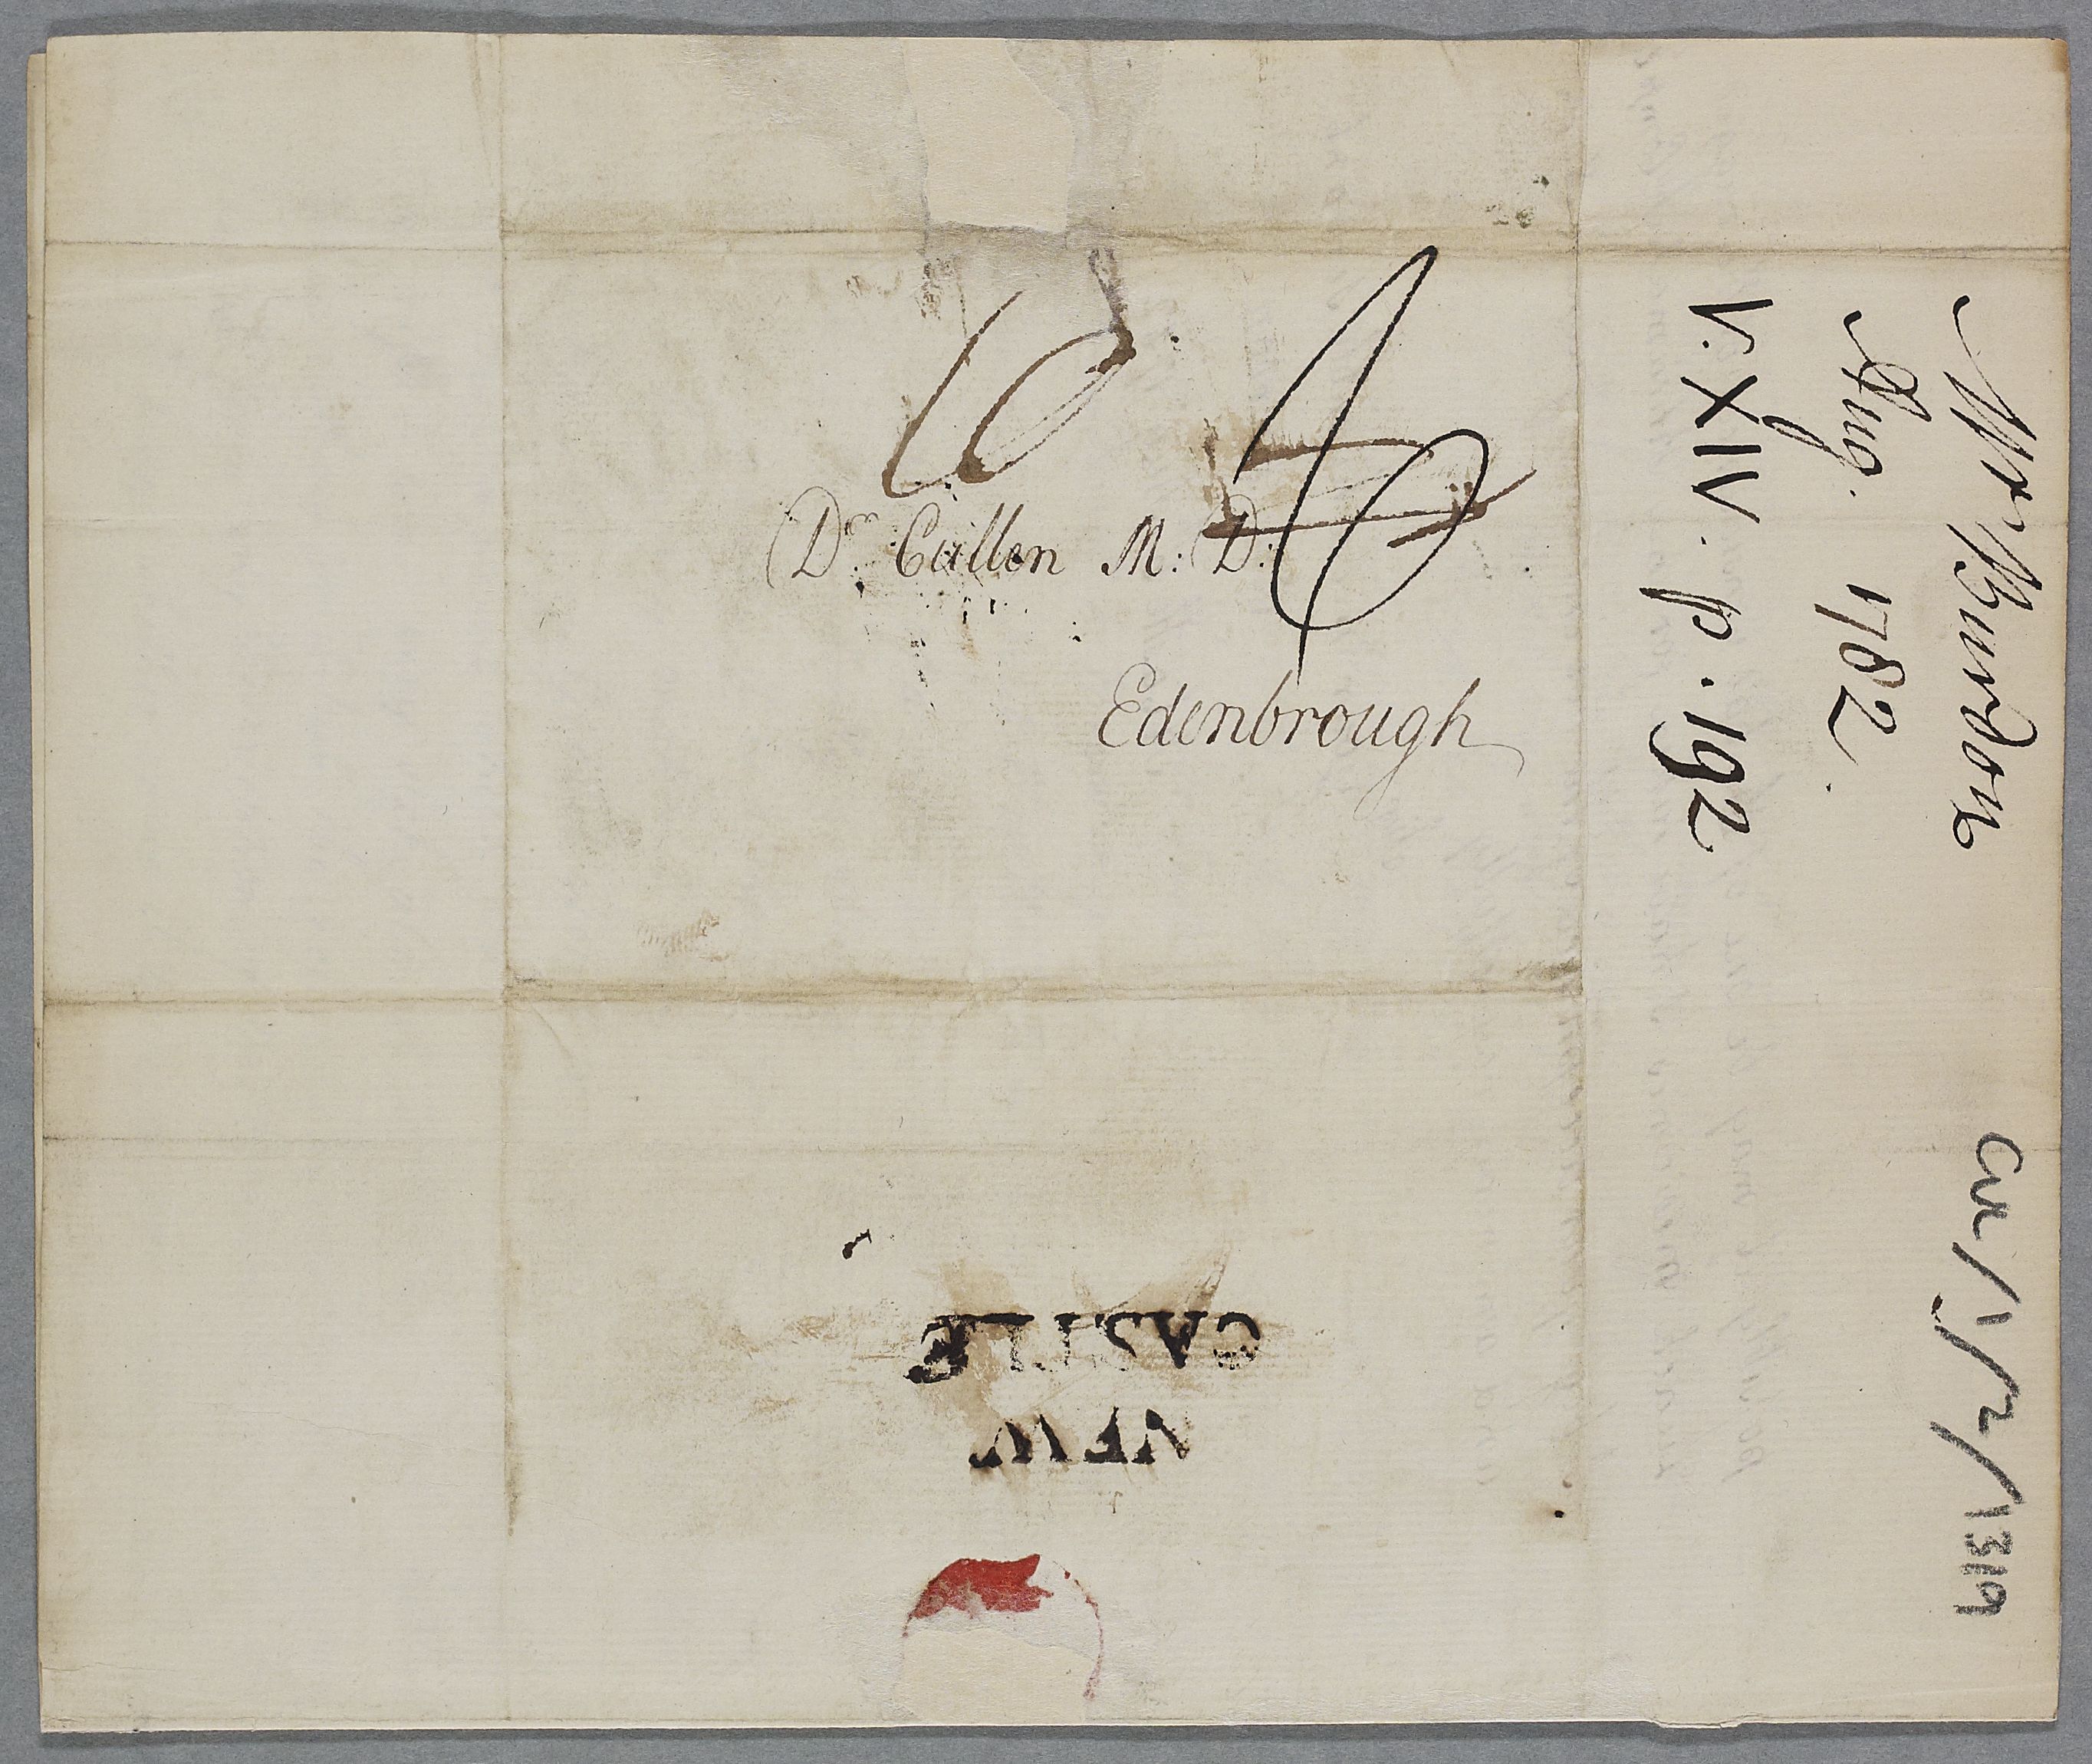 Dr. Cullen M: D:
Edenbrough
Mr Burdon
Aug. 1782.
V. XIV. p. 192
CUL/1/2/1319
NEW
CASTLE